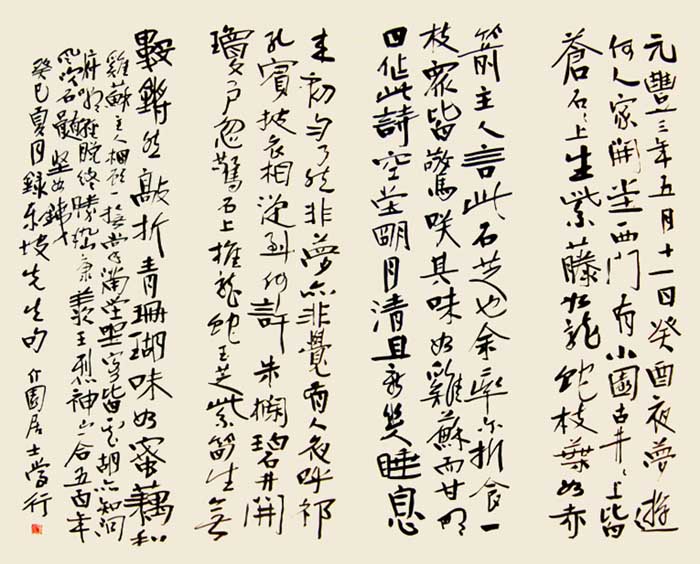 元豐三年五月十一日癸酉夜夢遊
何人家開堂西門有小園古井〻上皆
蒼石〻上生紫藤如龍蛇枝葉如赤
箭主人言此石芝也余率尔折食一
枝眾皆驚咲其味如雞蘇而甘明
日作此詩空堂明月清且新幽人睡息
來初勻了然非夢亦非覺有人夜呼祁
孔賓披衣相從到何許朱欄碧井開
瓊戶忽驚石上堆龍蛇玉芝紫筍生無
數鏗然敲折青珊瑚味如蜜藕和
雞蘇主人相顧一撫掌滿堂坐客皆盧胡亦知洞
府嘲輕脫終勝嵇康羨王烈神山一合五百年
風吹石髓堅如鐵
癸巳夏月錄東坡先生句 介園居士行